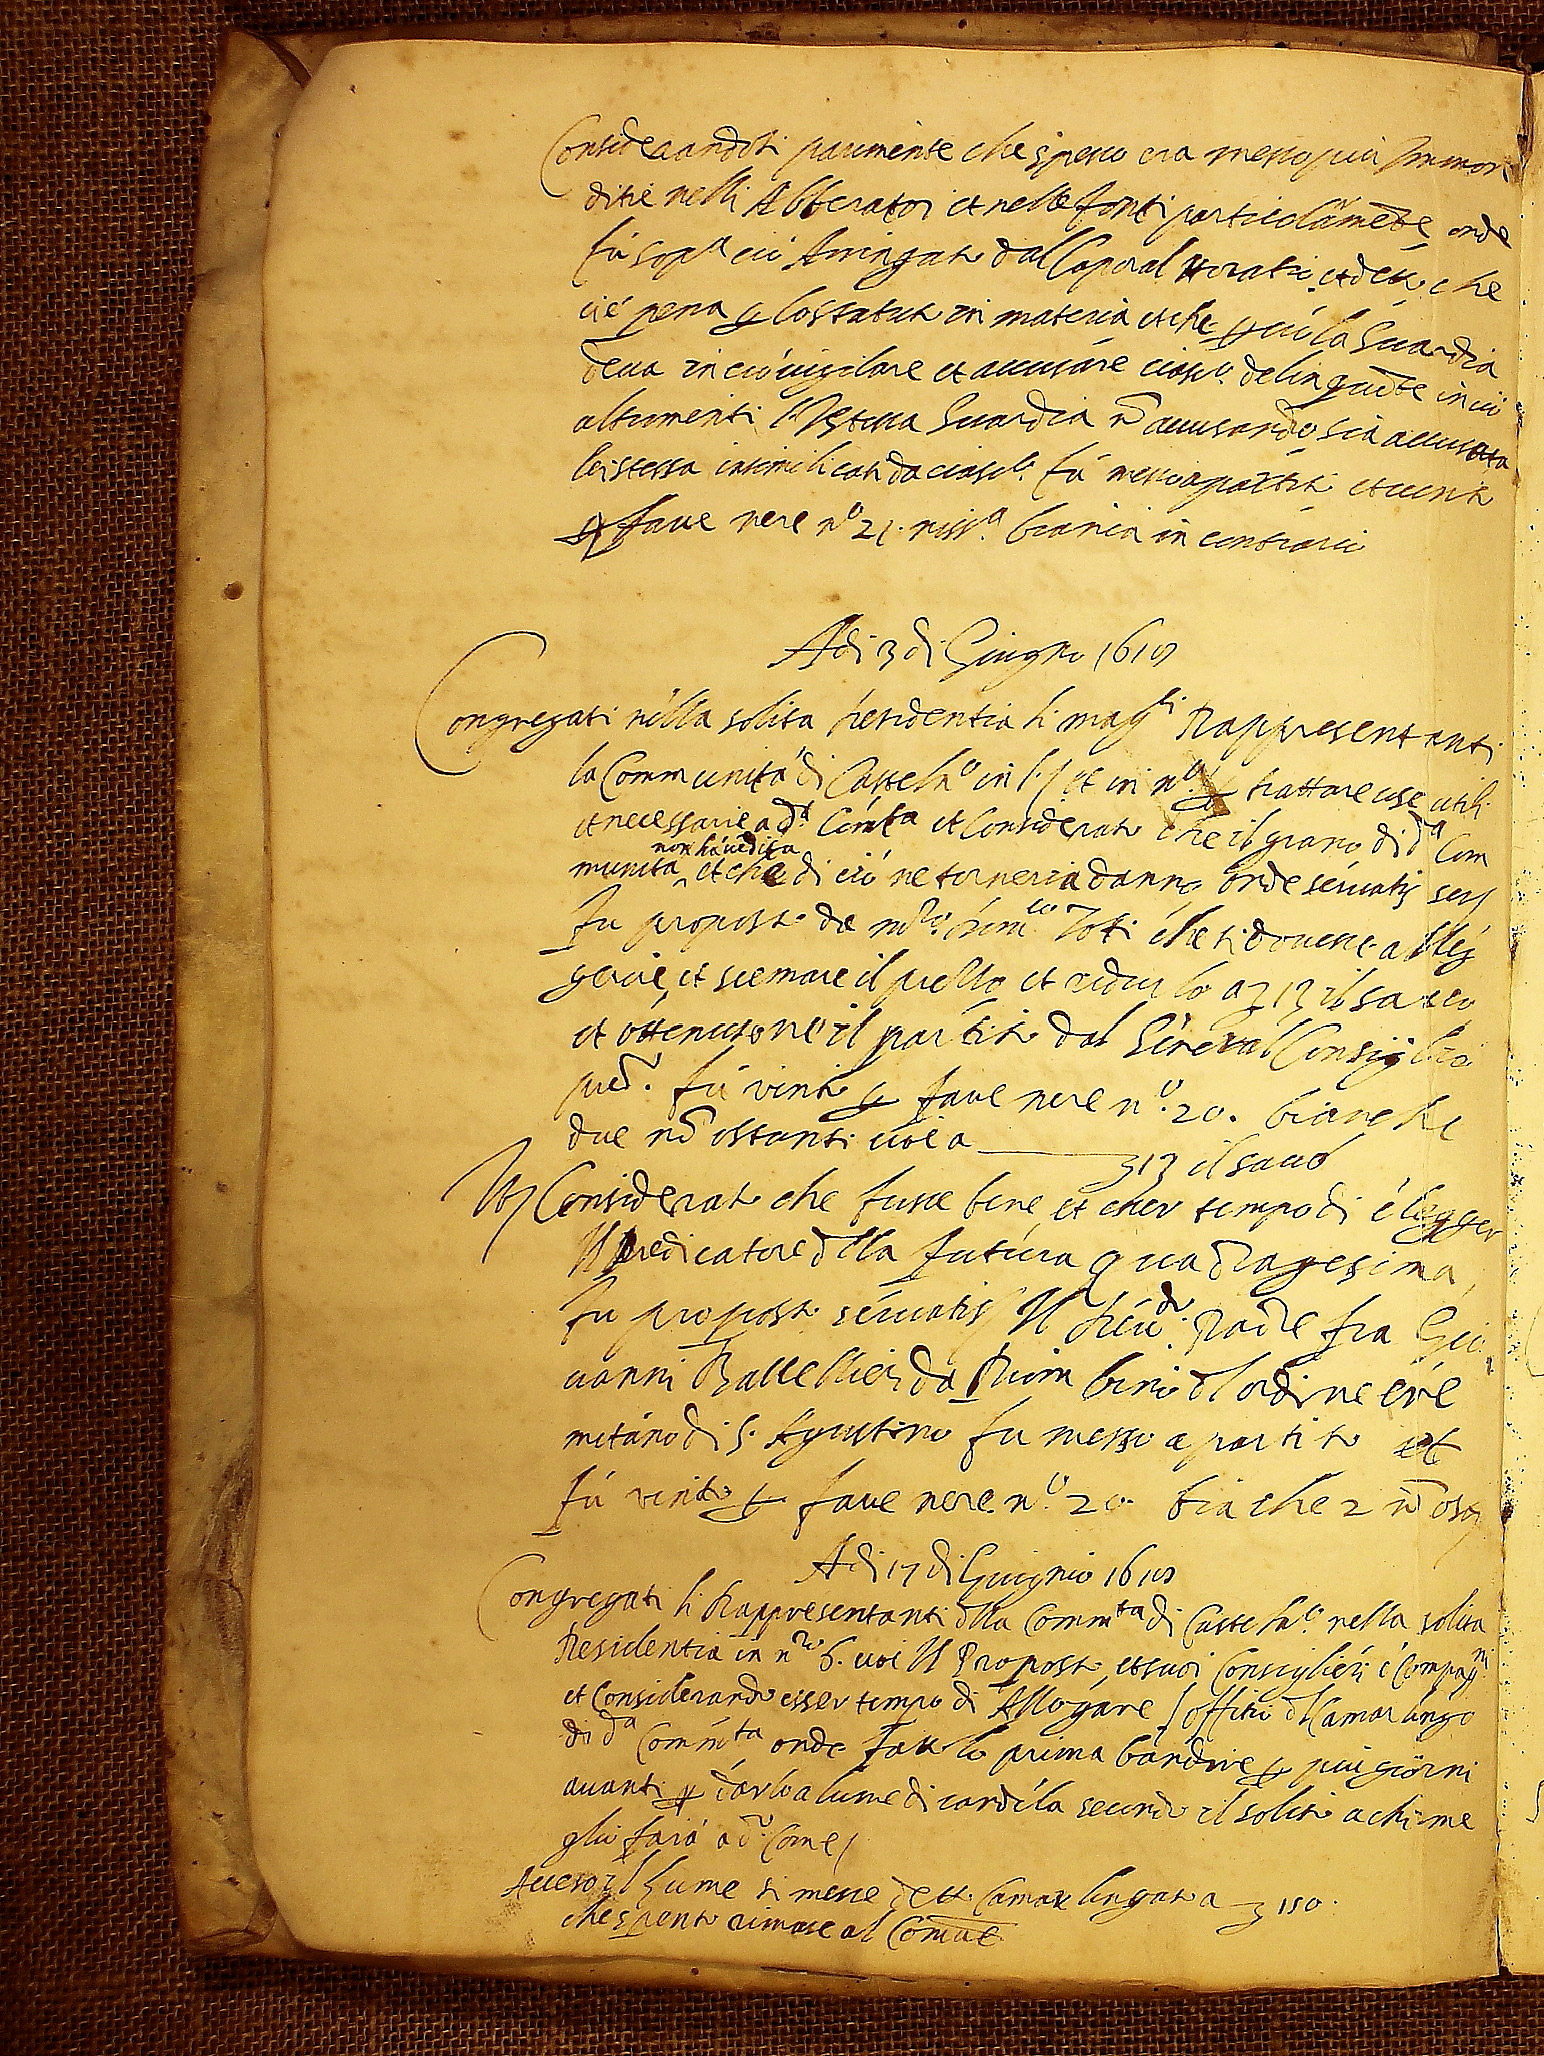 Considerandosi parimente che spesso era messo più Immon
ditie nelli Abberatori et nelle fonti particolarmēte, onde
fù sopra ciò Aringato dal Caporal Horatio, et detto che
ci è pena p lo statuto in materia et che p ciò la Guardia
deva in ciò vigilare et accusare ciasco delinquēte in ciò
altrimenti Guardia nō accusando sia accusata
lei stessa da ciasco. fù messo a partito et vento
p fave nere no 21. niss.a biancia in contrario
Adi 3 di Giugno 1610
Congregati nella solita Residentia li magci Rappresentanti
la Communità di Casteln.o in et in n.o p trattare cose utili
et necessarie a d.ta Comta et Considerato che il grano di d.a Com
non hà vēdita
munità et che di ciò ne torneria danno onde servatis ser
fu proposto da Toti che si dovesse alleg
gerire, et scemare il prezzo et ridurlo a 13 il sacco
et ottenutone il partito dal General Consiglio
pred. fù vinto p fave nere n.o 20. bianche
due nō ostanti cioè a 13 il sacco
Considerato che fusse bene, et esser tempo di elegger
Il Predicatore dlla futura quadragesima,
fu proposto servatis Il Padre fra Gio
vanni da dl ordine ere
mitano di S. Agustino fu messo a partito et
fù vinto p fave nere n.o 20. biāche 2 nō ost
Adi 17 di Giugnio 1610
Congregati li Rappresentanti dlla Commta di Casteln.o nella solita
Residentia in n.ro 6. cioè Il Proposto, et suoi Consiglieri e Compagni
et Considerando esser tempo di Allogare l offitio dl Camarlingo
di d.a Commta onde fattolo prima bandire p più giorni
avanti p darlo a lume di candela secondo il solito a chi me
glio farà a d.o Come
Acceso il Lume si messe detto Camarlingato a 150.
che spento rimase al Comūe